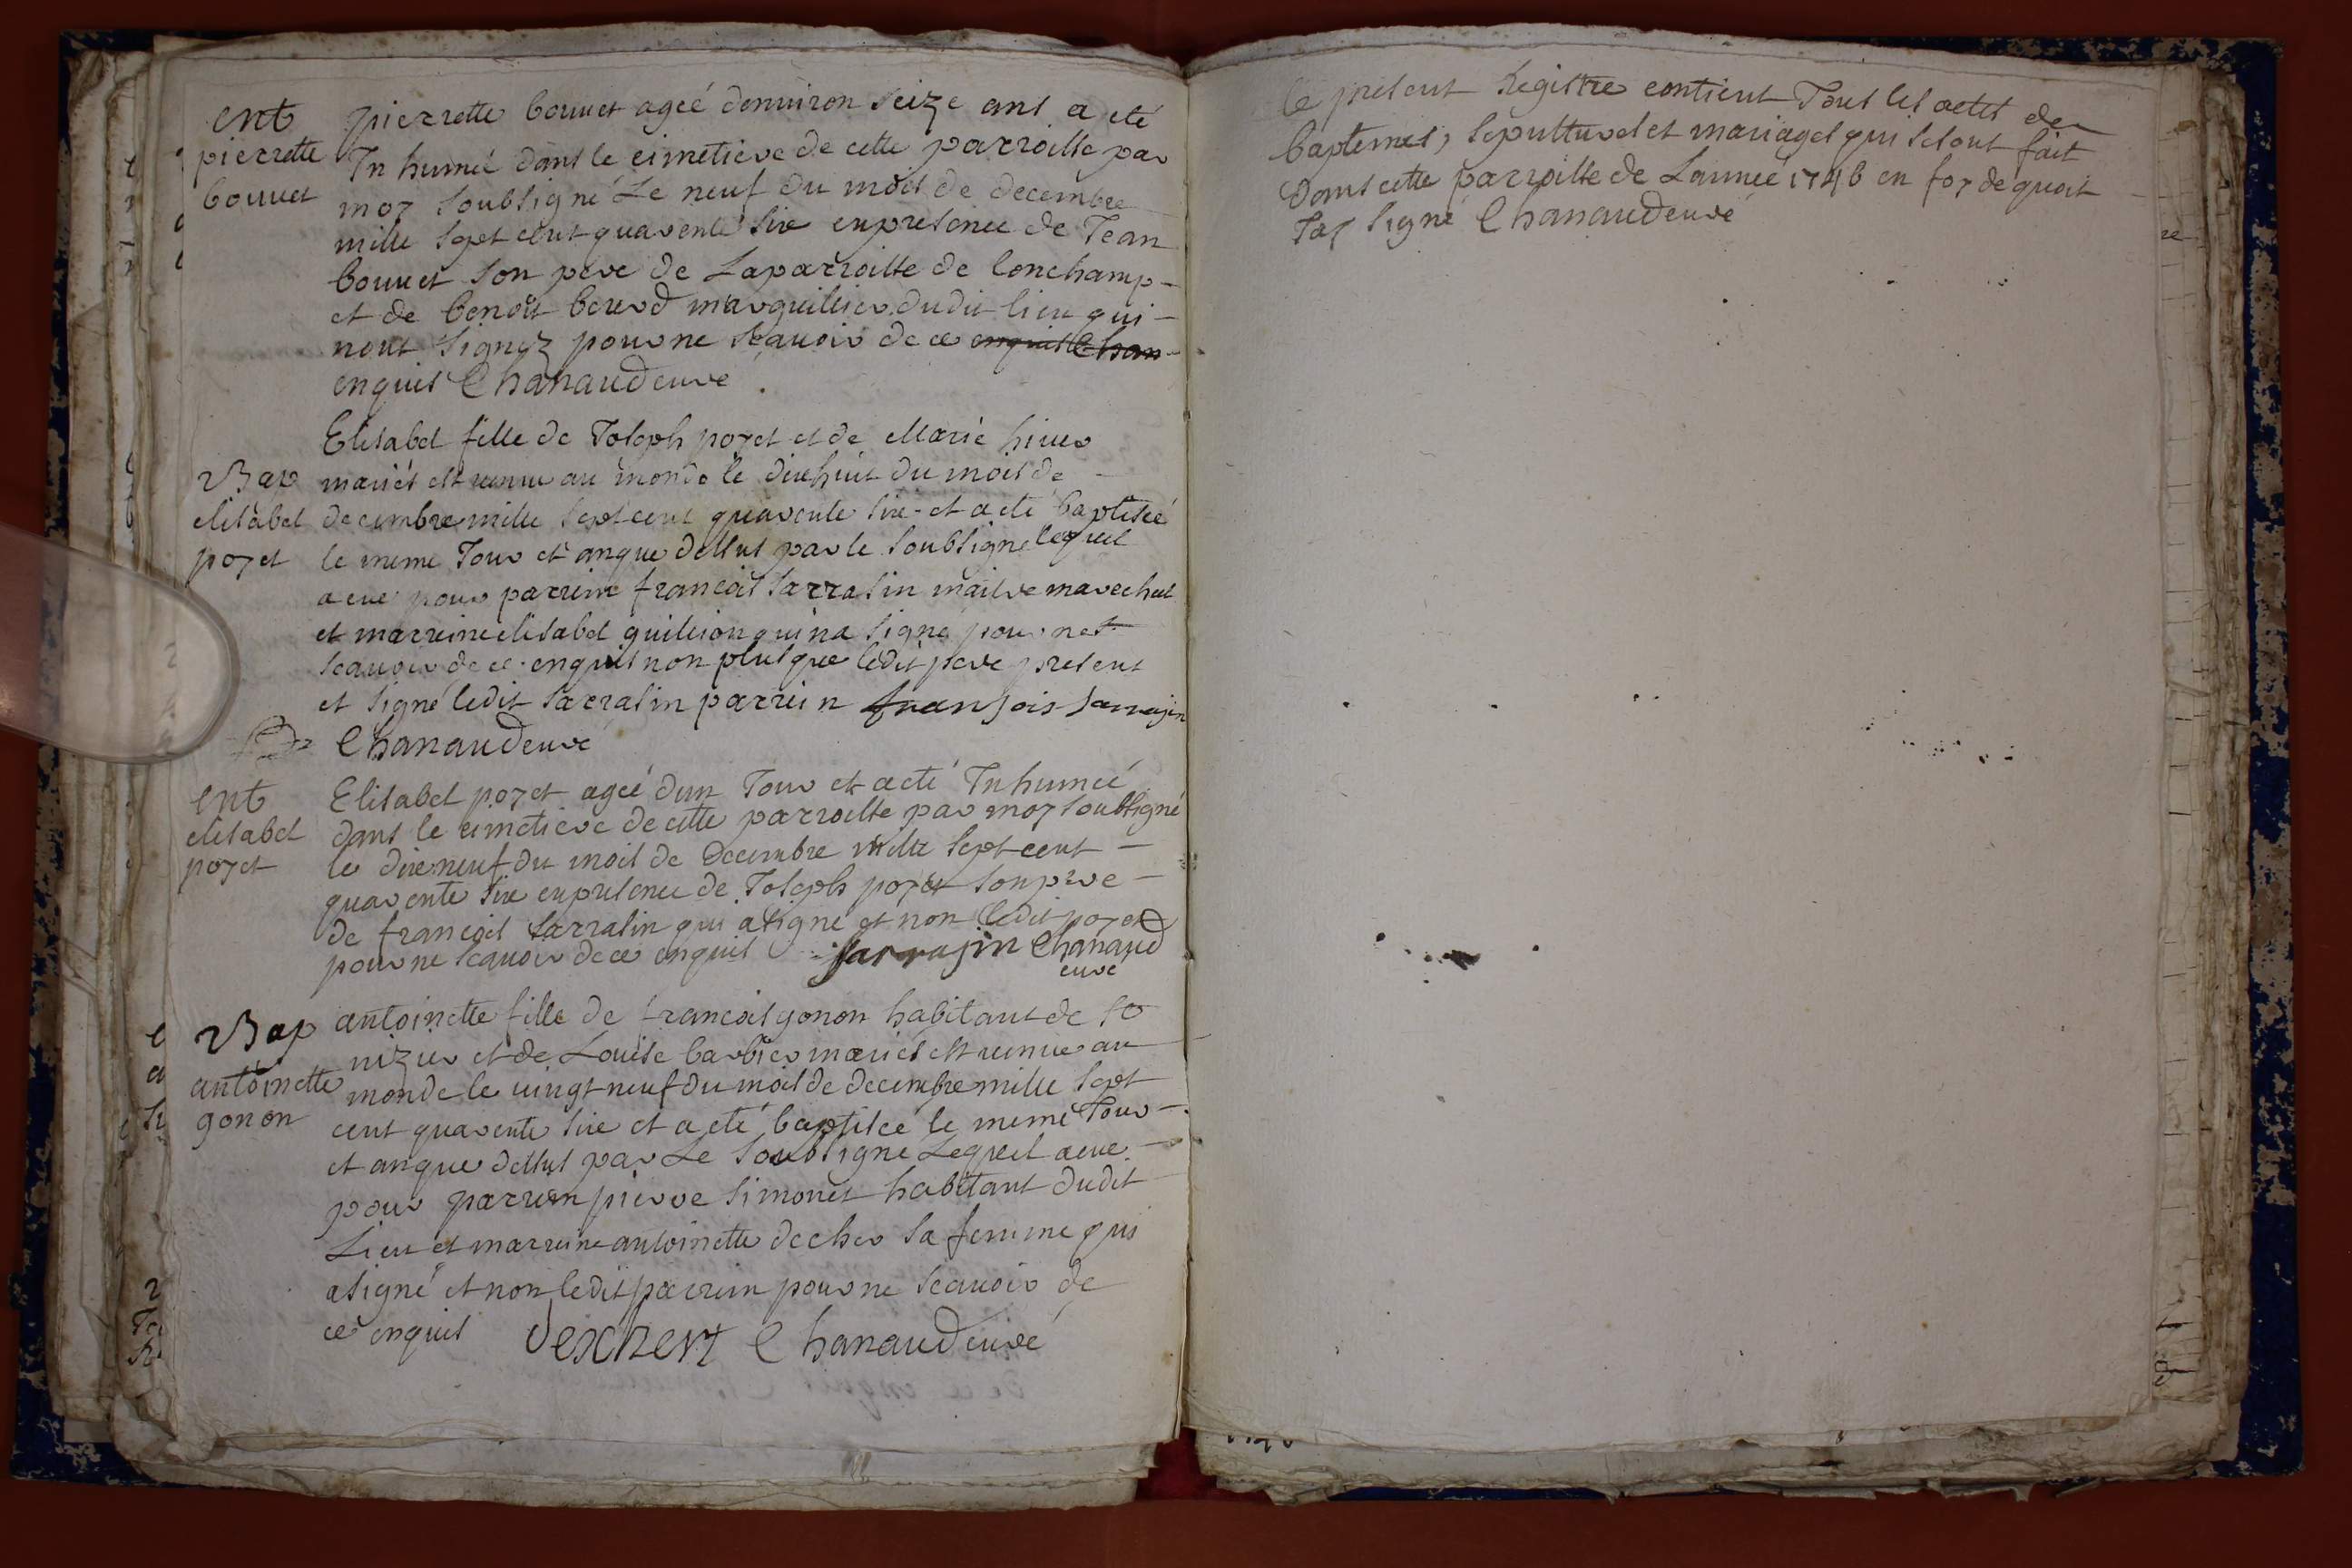 ent
pierrette
bouuet
pierrette bouuet ageé denuiron seize ans a eté
Inhumeé dans le cimetiere de cette parroisse par
moy soubsigné Le neuf du mois de decembre
mille sept cent quarente six en presence de Jean
bouuet son pere de La parroisse de lonchamp
et de benoit berrod marguillier dudit lieu qui
nont signez pour ne scauoir de ce enquis Chan
enquis Chanaud cure
Bap
elisabet
poyet
Elisabet fille de Joseph poyet et de Marie hiuer
mariés est uenue au monde le dixhuit du mois de
decembre mille sept cent quarente six et a eté baptiseé
le meme Jour et an que dessus par le soubsigné lequel
a eue pour parrein francois sarrasin maitre marechal
et marreine elisabet guillion qui na signé pour ne
scauoir de ce enquis non plus que ledit pere present
et signé ledit sarrasin parrein fransois sarrasin
Chanaud curé
ent
elisabet
poyet
Elisabet poyet ageé dun Jour et a eté Inhumeé
dans le cimetiere de cette parroisse par moy soubsigné
le dixneuf du mois de decembre mille sept cent
quarente six en presence de Joseph poyet son pere
de francois sarrasin qui a signé et non ledit poyet
pour ne scauoir de ce enquis sarrasin Chanaud
cure
Bap
antoinette
gonon
antoinette fille de francois gonon habitant de st
nizier et de Louise barbier mariés est uenue au
monde le uingt neuf du mois de decembre mille sept
cent quarente six et a eté baptiseé le meme Jour
et an que dessus par Le soubsigné Lequel a eue
pour parrein pierre simonet habitant dudit
Lieu et marreine antoinette decher sa femme qui
a signé et non ledit parrein pour ne scauoir de
ce enquis Chanaud curé
le present Registre contient Tous les actes de
baptemes, sepultures et mariages qui se sont fait
dans cette parroisse de Lannee 1746 en foy de quoit
Jay signé Chanaud curé